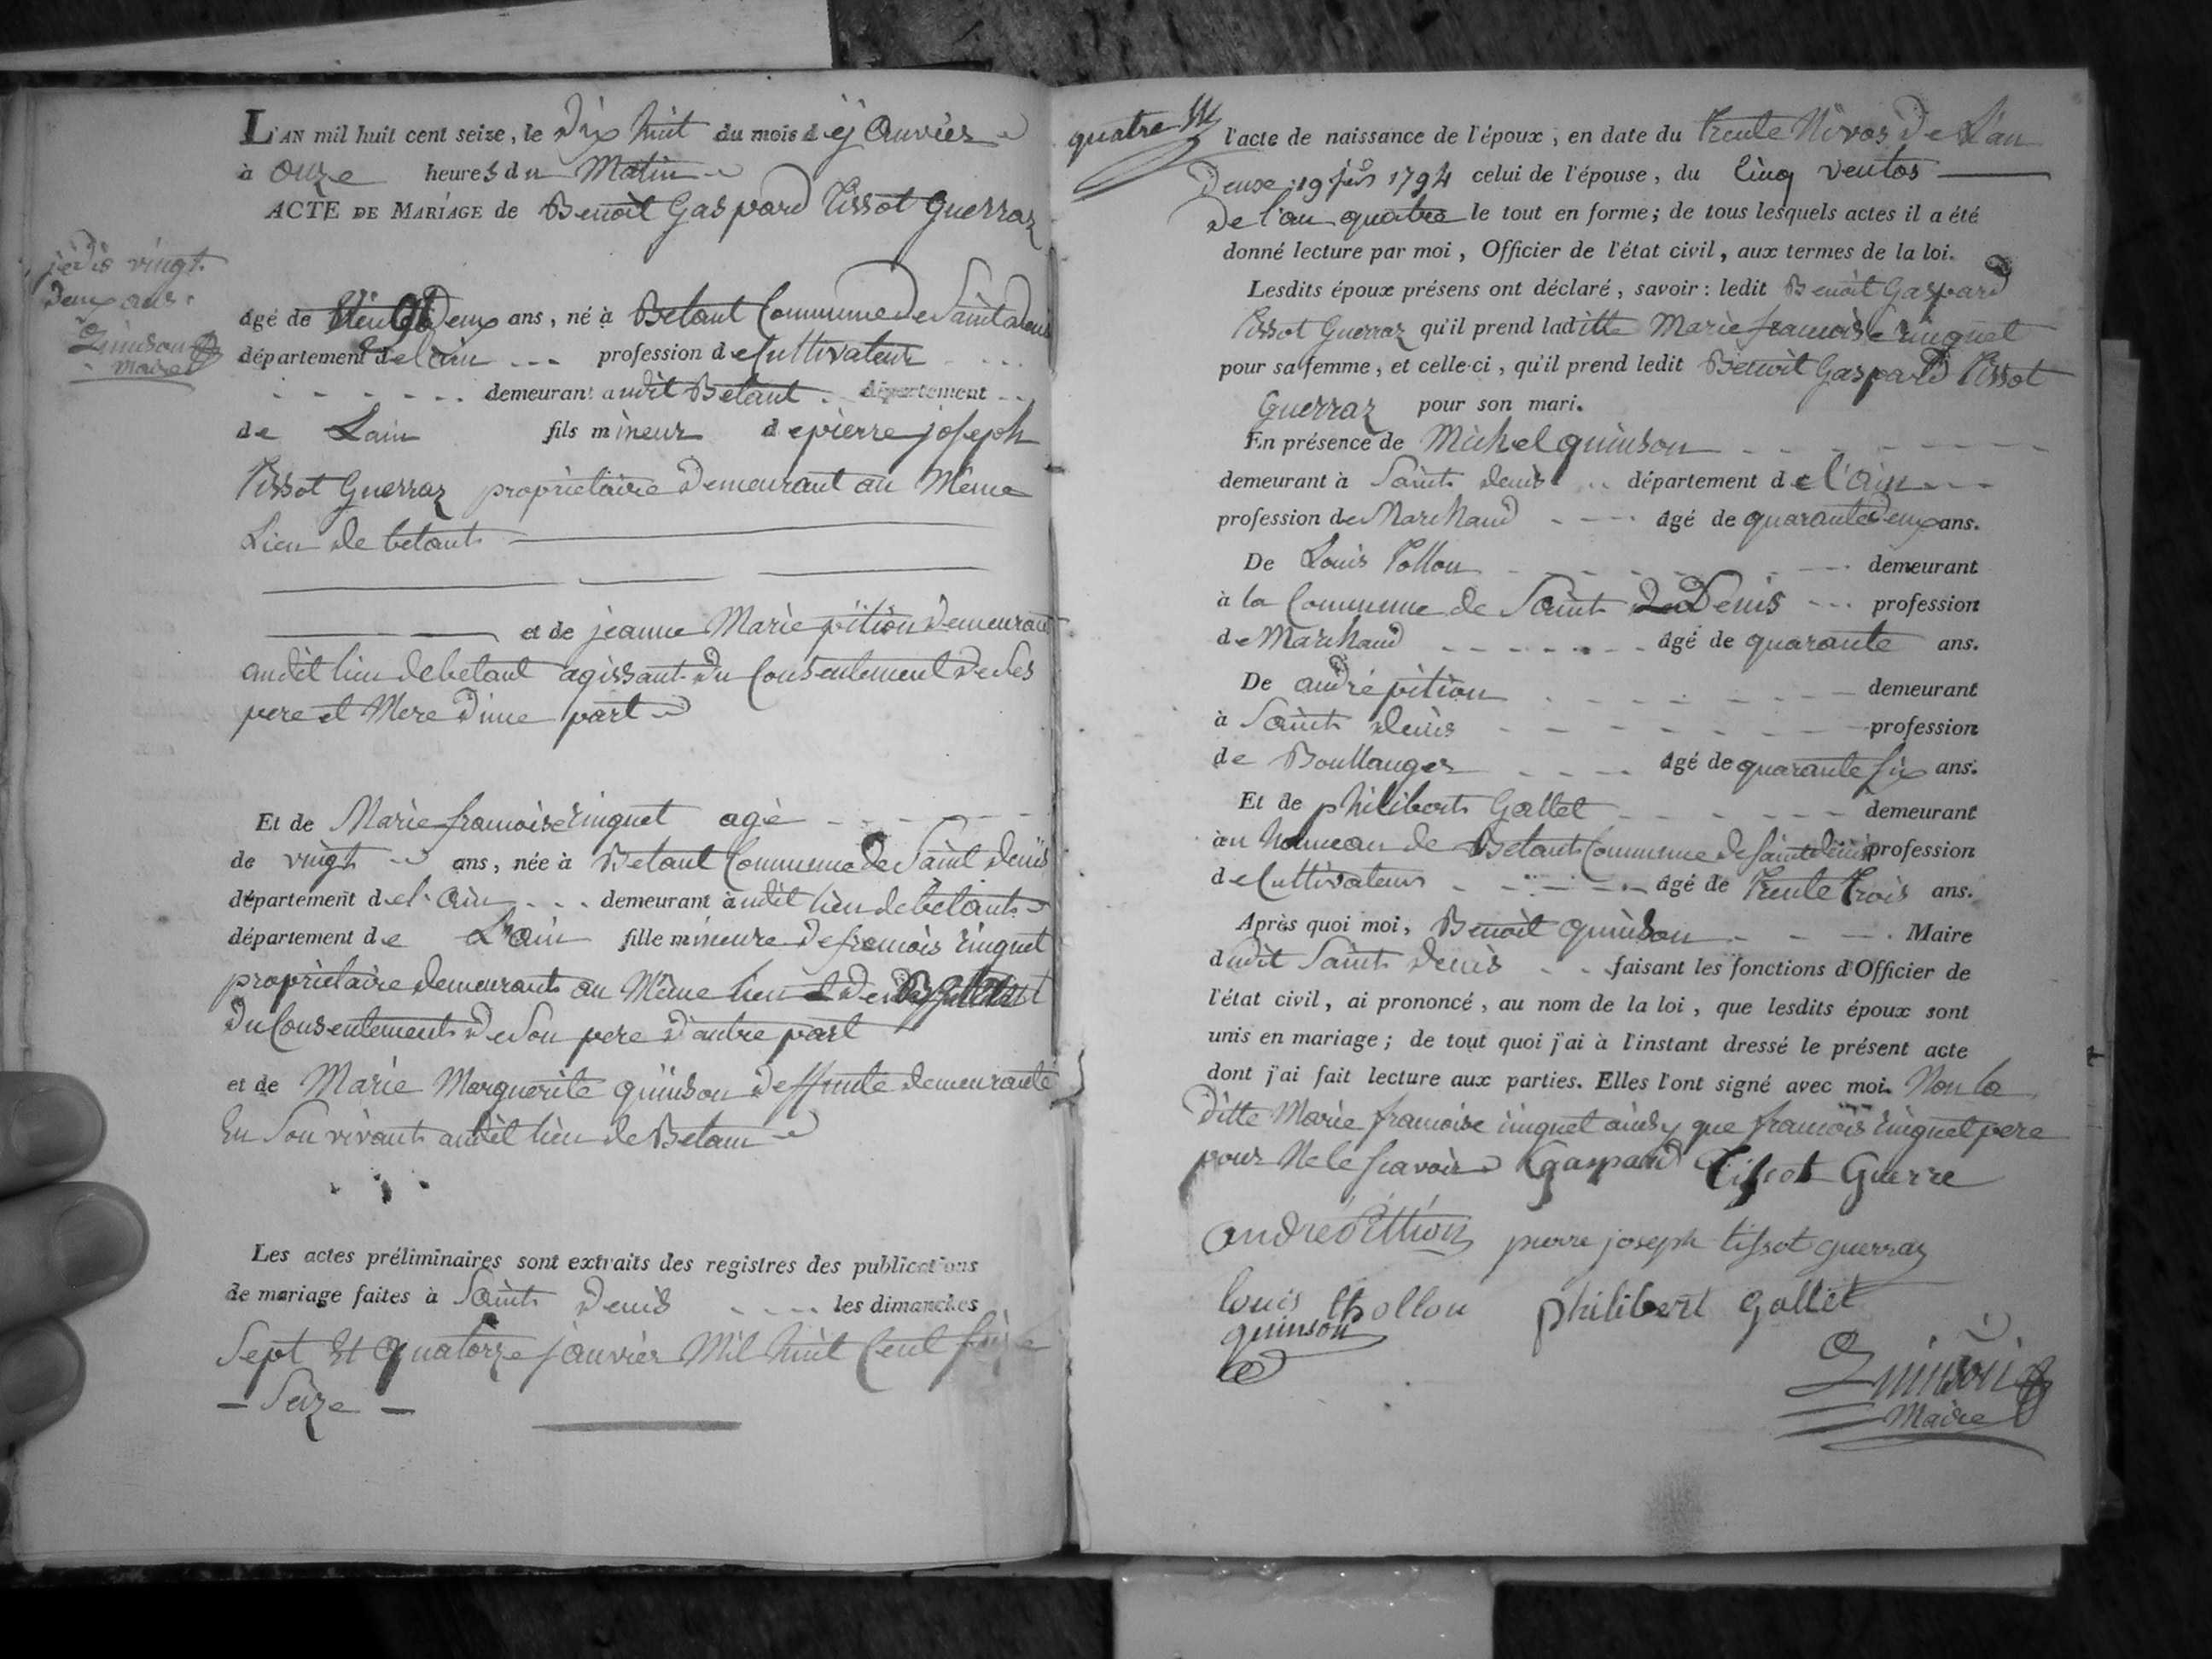 L'AN mil huit cent seize, le Dix huit du mois de janvier
à onze heures du Matin
ACTE DE MARIAGE de Benoit Gaspard Tissot Guerraz
je dis vingt
deux ans.
Quinson
Maire
âgé de vingt Deux ans, né à Betant Commune de Saint denis
département de l'ain profession de Cultivateur
demeurant audit Betant département
de Lain fils mineur de pierre joseph
Tissot Guerraz proprietaire Demeurant au Même
Lieu de betant
et de jeanne Marie pition Demeurant
audit lieu de betant agissant du Consentement de ses
pere et Mere D'une part
Et de Marie francoise ringuet agé
de vingt ans, née à Betant Commune de Saint denis
département de l'ain demeurant audit lieu de betant
département de L'ain fille mineure de francois ringuet
proprietaire demeurant au Même lieu
Du Consentement De Son pere D'autre part
et de Marie Marguerite quinson deffunte demeurante
En Son vivant audit lieu de Betant
Les actes préliminaires sont extraits des registres des publications
de mariage faites à Saint Denis les dimanches
Sept Et Quatorze janvier Mil huit Cent Seize
- Seize -
quatre
l'acte de naissance de l'époux, en date du trente Nivos De L'an
Deuxe 19 1794 celui de l'épouse, du Cinq ventos
De l'an quatre le tout en forme; de tous lesquels actes il a été
donné lecture par moi, Officier de l'état civil, aux termes de la loi.
Lesdits époux présens ont déclaré, savoir: ledit Benoit Gaspard
Tissot Guerraz qu'il prend laditte Marie francoise ringuet
pour sa femme, et celle-ci, qu'il prend ledit Benoit Gaspard Tissot
Guerraz pour son mari.
En présence de Michel quinson
demeurant à Saint Denis département de l'ain
profession de Marchand âgé de quarante Deux ans.
De Louis Tollon demeurant
à la Commune de Saint Denis profession
de Marchand âgé de quarante ans.
De andré pition demeurant
à Saint Denis profession
de Boullanger âgé de quarante six ans.
Et de philibert Gallet demeurant
au hameau de Betant Commune de Saint denis profession
de Cultivateur âgé de trente trois ans.
Après quoi moi, Benoit quinson Maire
dudit Saint Denis faisant les fonctions d'Officier de
l'état civil, ai prononcé, au nom de la loi, que lesdits époux sont
unis en mariage; de tout quoi j'ai à l'instant dressé le présent acte
dont j'ai fait lecture aux parties. Elles l'ont signé avec moi. Non la
Ditte Marie francoise ringuet ainsy que francois ringuet pere
pour Ne le scavoir Gaspard Tissot Guerre
andré Pittion pierre joseph tissot guerraz
louis thollon philibert gallet
quinson
Quinson
Maire